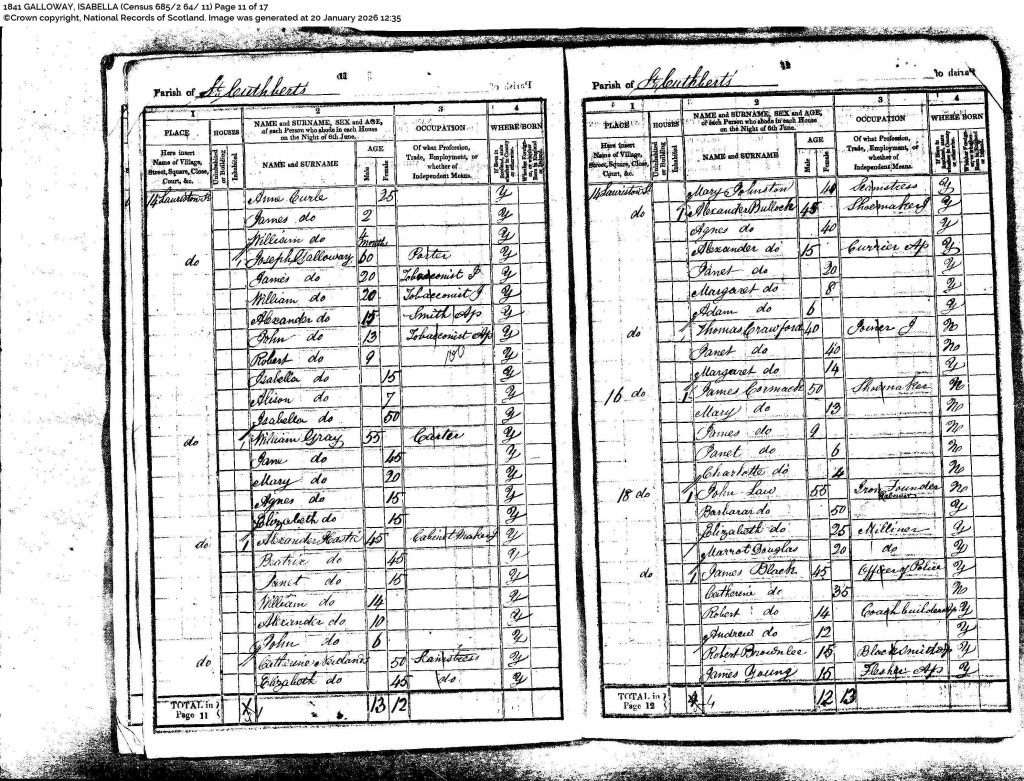 1841 GALLOWAY, ISABELLA (Census 685/2 64/ 11) Page 11 of 17
©Crown copyright, National Records of Scotland. Image was generated at 20 January 2026 12:35
11
Parish of St Cuthberts
1 2 3 4
PLACE HOUSES NAME and SURNAME, SEX and AGE, of each Person who abode in each House on the Night of 6th June. OCCUPATION WHERE BORN
Here insert Name of Village, Street, Square, Close, Court, &c. Uninhabited or Building Inhabited NAME and SURNAME AGE Male Female Of what Profession, Trade, Employment, or whether of Independent Means.
14 Lauriston St Anne Curle 25 Y
James do 2 Y
William do 4 months Y
do 1 Joseph Galloway 60 Porter Y
James do 20 Tobacconist J Y
William do 20 Tobacconist J Y
Alexander do 15 Smith Ap Y
John do 13 Tobacconist Ap Y
Robert do 9 Y
Isabella do 15 Y
Alison do 7 Y
Isabella do 50 Y
do 1 William Gray 55 Carter Y
Jane do 45 Y
Mary do 20 Y
Agnes do 15 Y
Elizabeth do 15 Y
do 1 Alexander 45 Cabinet Maker J Y
Beatrix do 45 Y
Janet do 15 Y
William do 14 Y
Alexander do 10 Y
John do 6 Y
do 1 Catherine 50 Seamstress Y
Elizabeth do 45 do Y
TOTAL in Page 11 4 13 12
12
Parish of St Cuthberts
1 2 3 4
PLACE HOUSES NAME and SURNAME, SEX and AGE, of each Person who abode in each House on the Night of 6th June. OCCUPATION WHERE BORN
Here insert Name of Village, Street, Square, Close, Court, &c. Uninhabited or Building Inhabited NAME and SURNAME AGE Male Female Of what Profession, Trade, Employment, or whether of Independent Means.
14 Lauriston St Mary Johnston 40 Seamstress Y
do 1 Alexander Bulloch 45 Shoemaker J Y
Agnes do 40 Y
Alexander do 15 Currier Ap Y
Janet do 20 Y
Margaret do 8 Y
Adam do 6 Y
do 1 Thomas Crawford 40 Joiner J N
Janet do 40 No
Margaret do 14 Y
16 do 1 James Cormack 50 Shoemaker N
Mary do 13 No
James do 9 N
Janet do 6 No
Charlotte do 4 No
18 do 1 John Law 55 Iron Founder No
Barbara do 50 Y
Elizabeth do 25 Milliner Y
Marrot Douglas 20 do Y
do 1 James Black 45 Officer of Police Y
Catherine do 35 No
Robert do 14 Coach builder Ap Y
Andrew do 12 Y
Robert Brownlee 15 Blacksmith Ap Y
James Young 15 Flesher Ap Y
TOTAL in Page 12 4 12 13